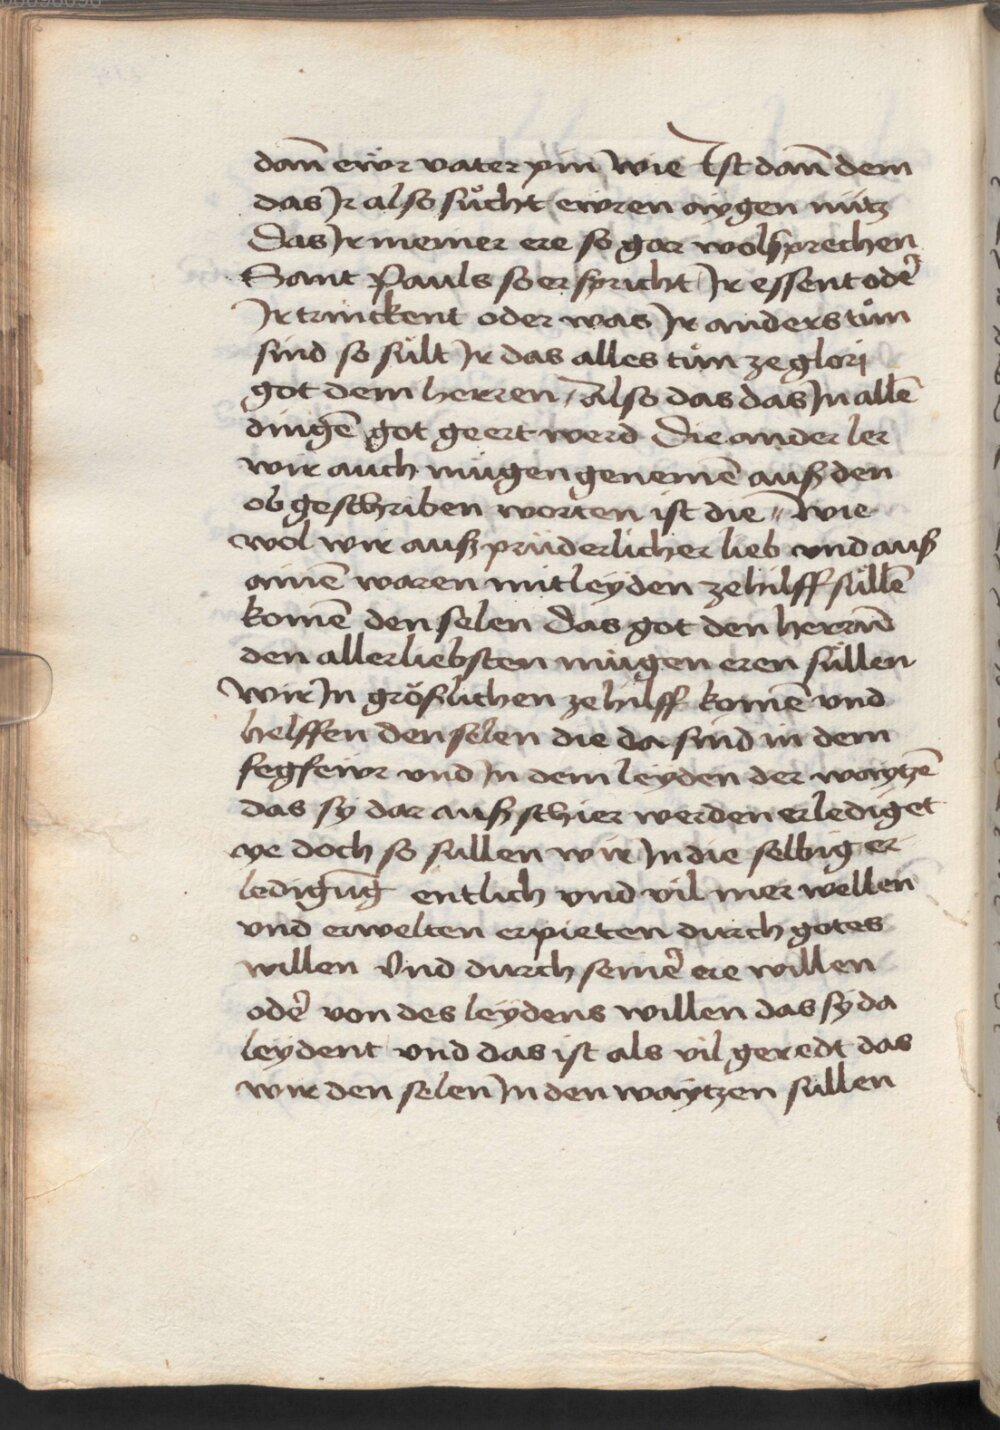 dan̄ ewr vater pin wie Ist dan̄ dem
das Jr also sůcht ewren aygen nütz
Das Jr meiner ere so gar wol sprechen
Sant Pauls so er spricht Jr essent odeꝛ
Jr trinckent oder was Jr anders tůn
sind so sült Jr das alles tůn ze glori
got dem herren / Also das das Jn allē
dingē got geert werd Die ander ler
wir auch mügen genemē auß den
ob geschriben worten ist die // Wie
wol wir auß prüderlicher lieb vnd auß
ainē waren mitleyden ze hilff süllē
komē den selen Das got den herrn̄
den allerliebsten mügen eren süllen
Wir Jn größlichen ze hilff komē vnd
helffen den selen die da sind in dem
fegfewr vnd Jn dem leyden der waytzē
das sy dar auß schier werden erlediget
ye doch so sullen wir Jn die selbig er
ledigūg entlich vnd vil mer wellen
vnd erwelten erpieten durch gotes
willen Vnd durch seineꝛ ere willen
odeꝛ von des leydens willen das sy da
leydent vnd das ist als vil geredt das
wir den selen Jn den waytzen sullen